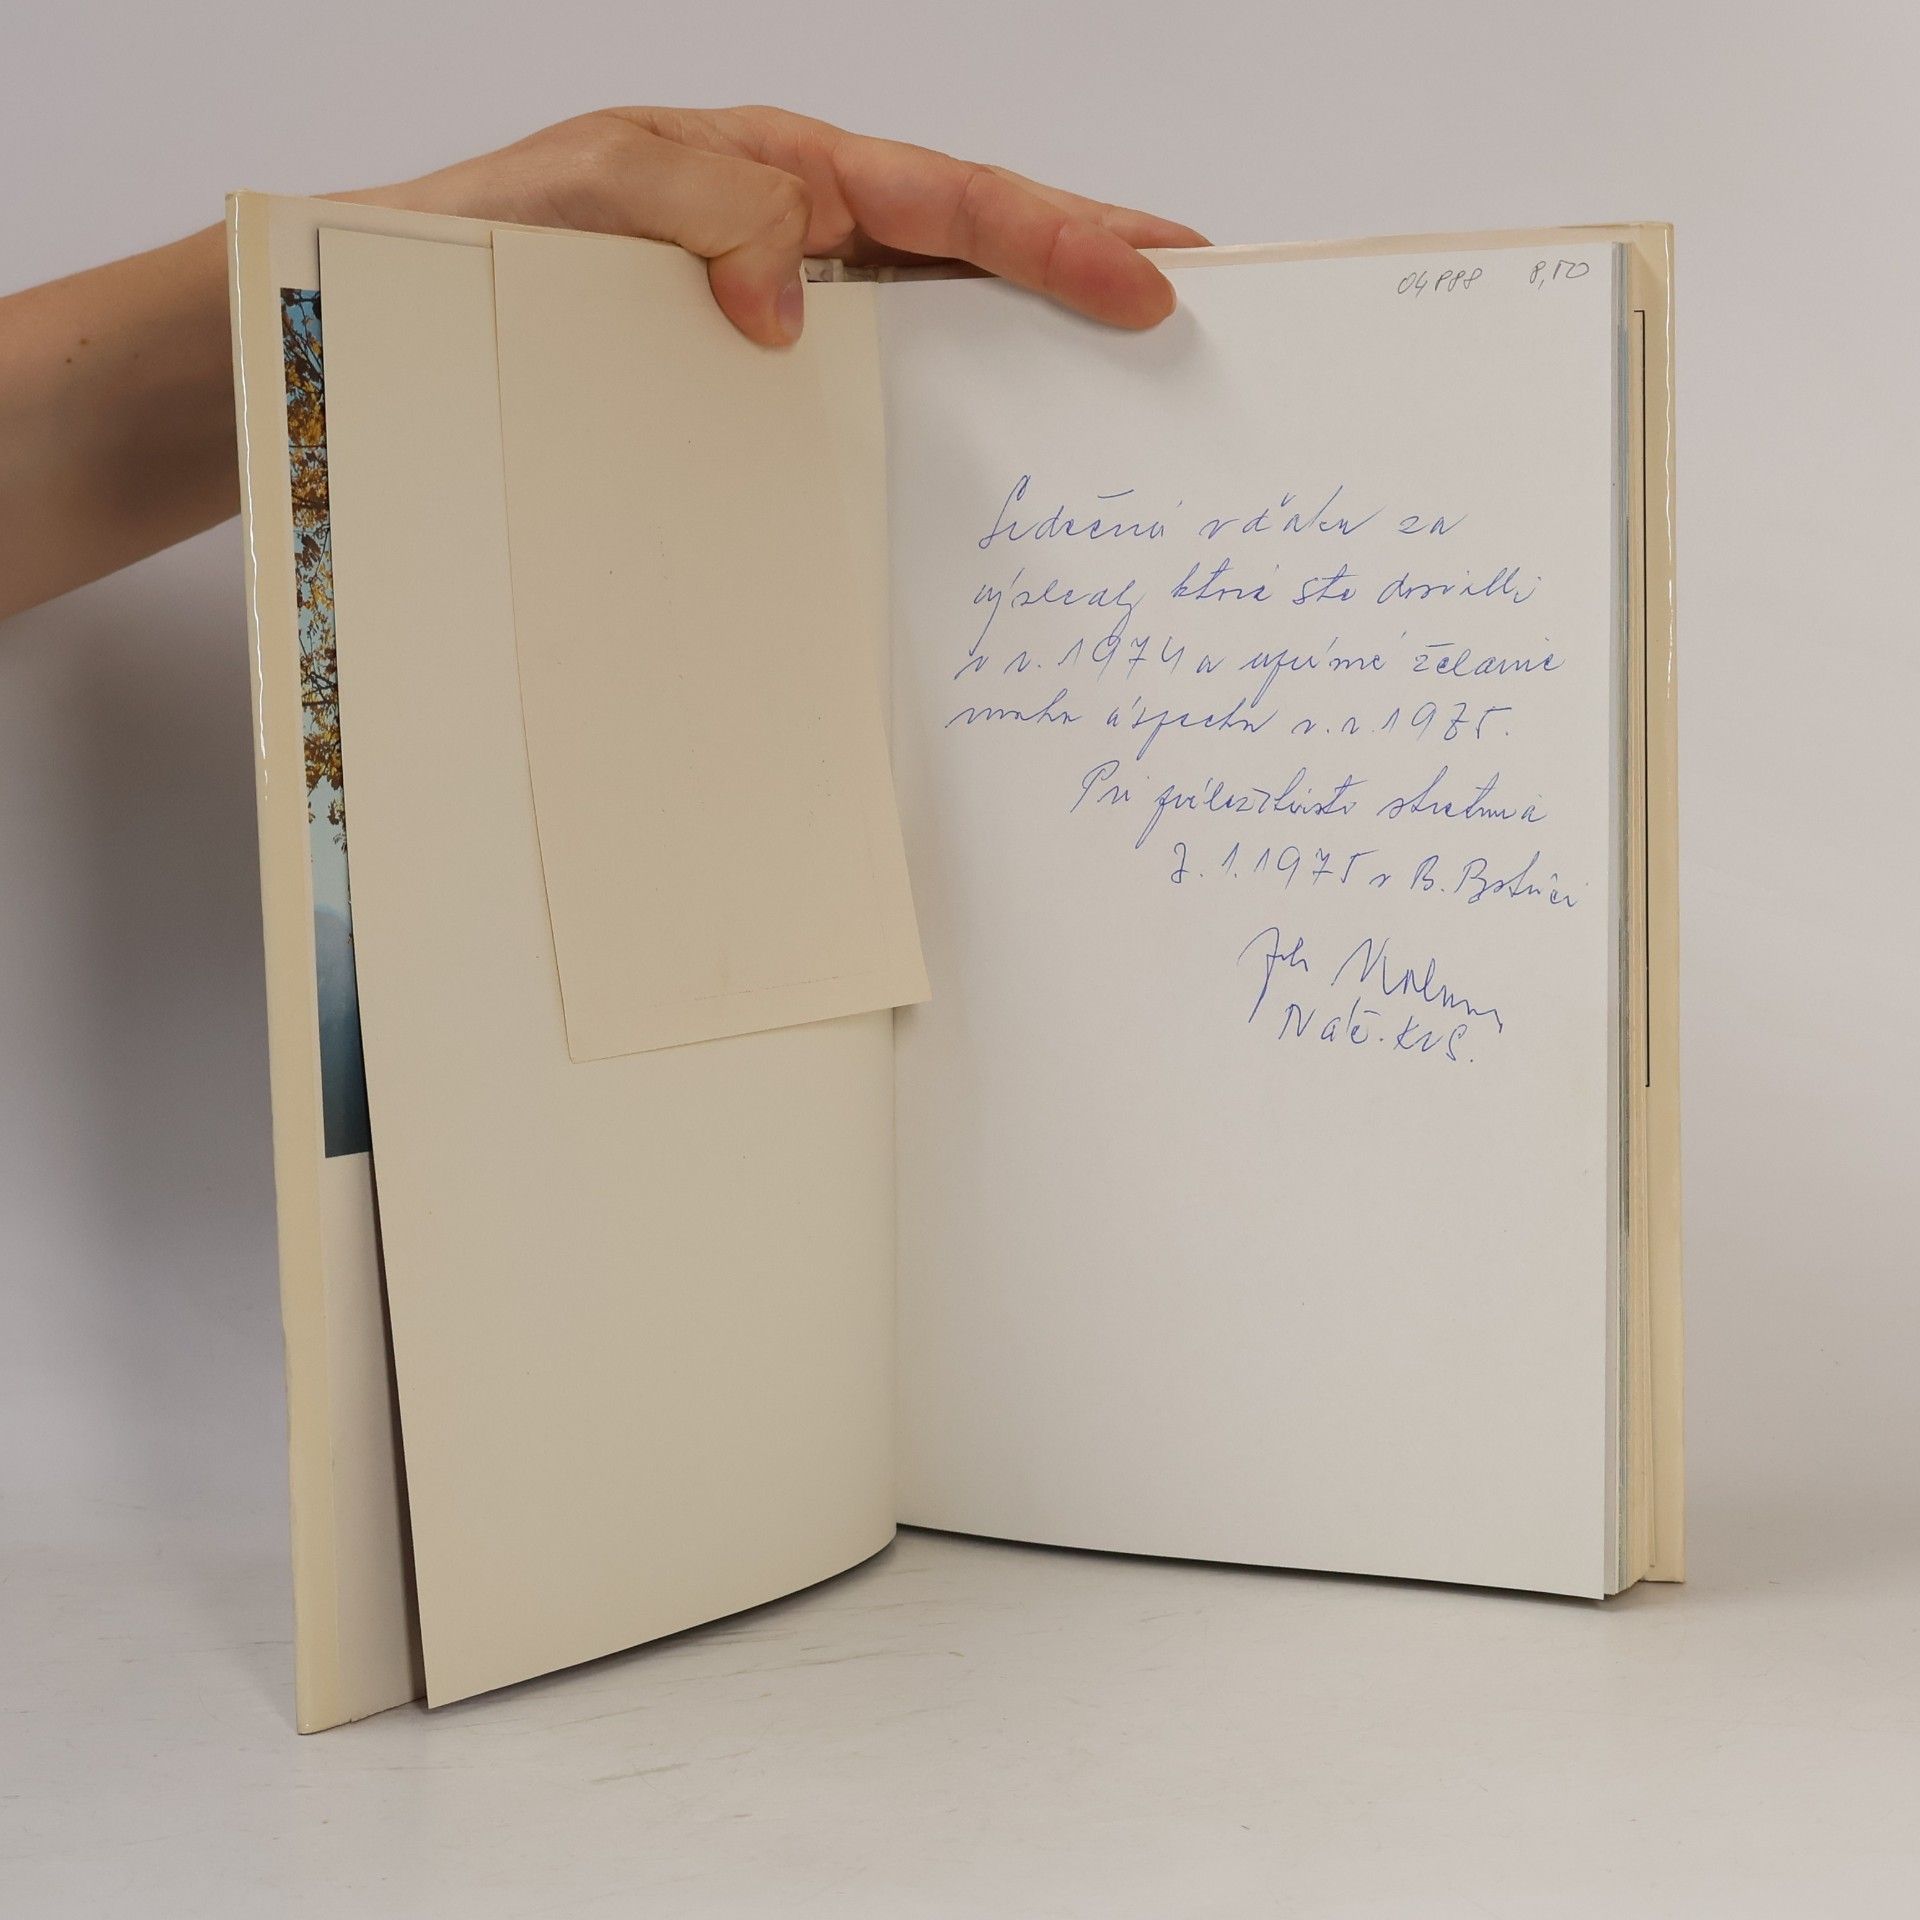 04888 8,50
Srdečná vďaka za
výsledky ktoré ste dosiahli
v r. 1974 a úprimné želanie
mnoho úspechov v r. 1975.
Pri príležitosti stretnutia
7.1.1975 v B. Bystrici
Náč. KVS.